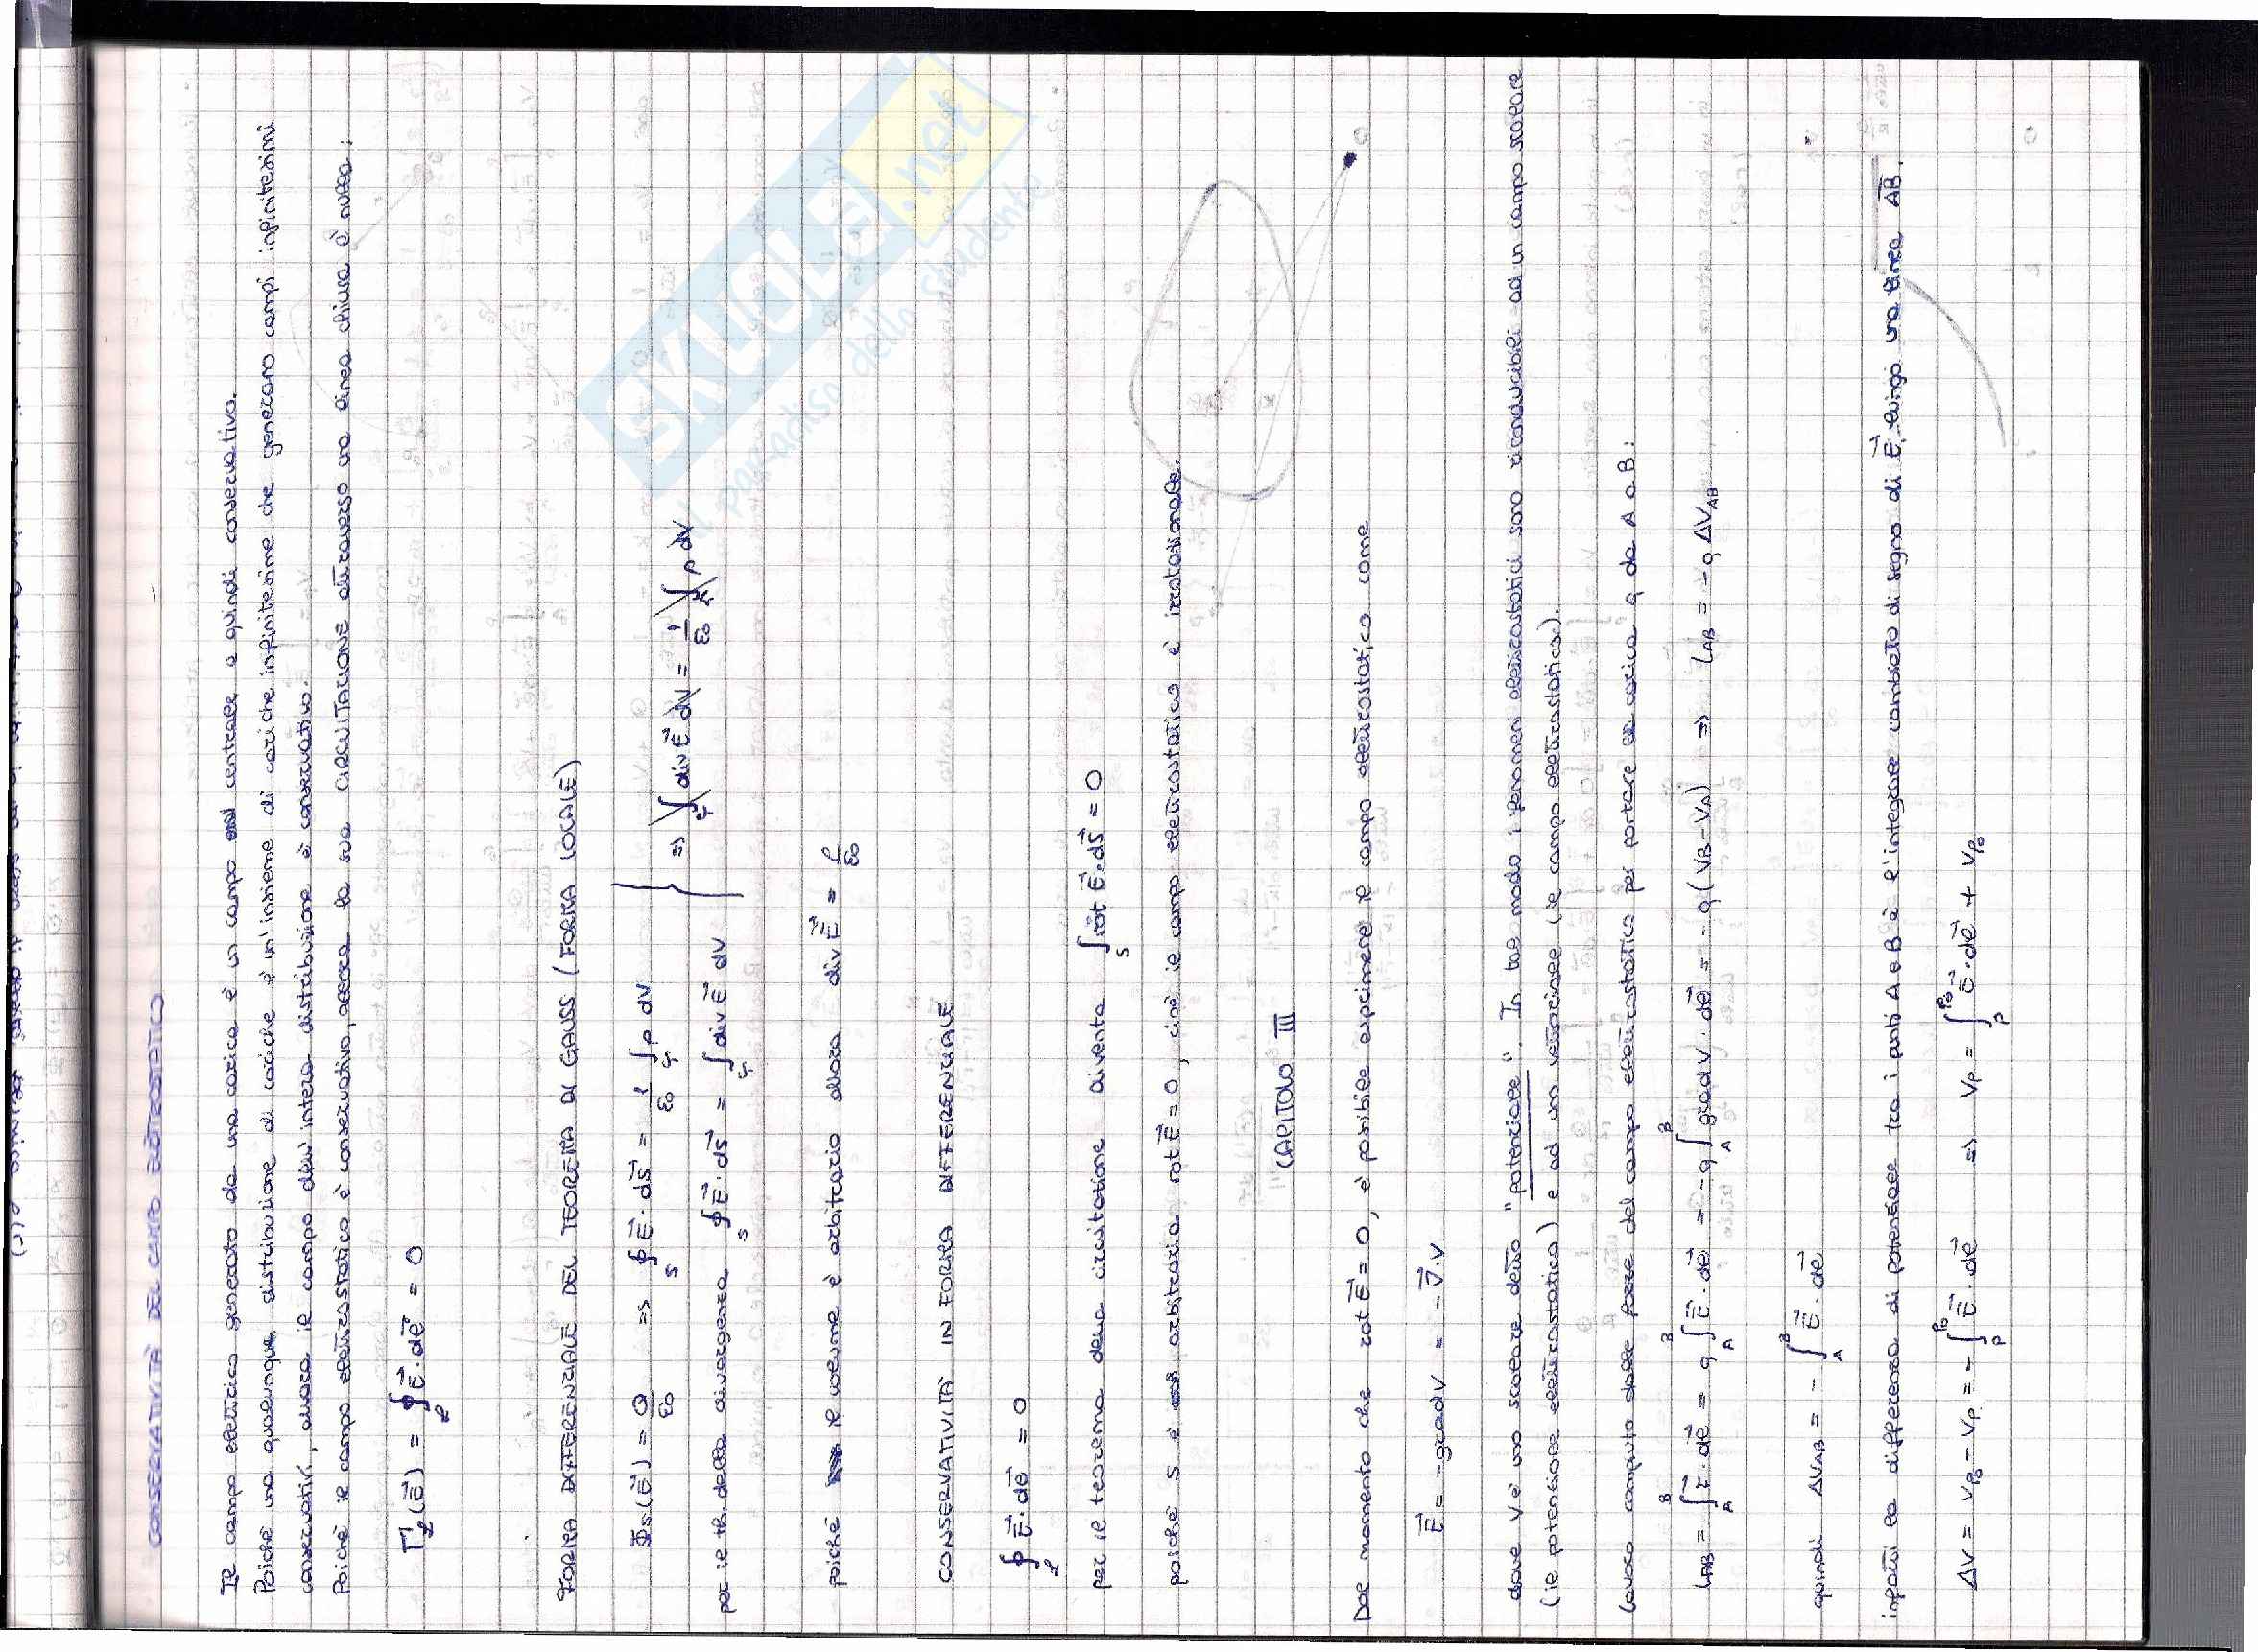 CONSERVATIVITÀ DEL CAMPO ELETTROSTATICO
Il campo elettrico generato da una carica è un campo centrale e quindi conservativo.
Poiché una qualunque distribuzione di cariche è un'insieme di cariche infinitesime che generano campi infinitesimi
conservativi, allora il campo dell'intera distribuzione è conservativo.
Poiché il campo elettrostatico è conservativo, allora la sua CIRCUITAZIONE attraverso una linea chiusa è nulla:
Γ_ℓ(E⃗) = ∮_ℓ E⃗·dℓ⃗ = 0
FORMA DIFFERENZIALE DEL TEOREMA DI GAUSS (FORMA LOCALE)
Φs(E⃗) = Q/ε₀ ⇒ ∮_S E⃗·dS⃗ = 1/ε₀ ∫_τ ρ dV
per il th. della divergenza ∮_S E⃗·dS⃗ = ∫_τ div E⃗ dV
⇒ ∫_τ div E⃗ dV = 1/ε₀ ∫_τ ρ dV
poiché il volume è arbitrario allora div E⃗ = ρ/ε₀
CONSERVATIVITÀ IN FORMA DIFFERENZIALE
∮_ℓ E⃗·dℓ⃗ = 0
per il teorema della circuitazione diventa ∫_S rot E⃗·dS⃗ = 0
poiché S è arbitraria rot E⃗ = 0, cioè il campo elettrostatico è irrotazionale.
CAPITOLO III
Dal momento che rot E⃗ = 0, è possibile esprimere il campo elettrostatico come
E⃗ = -grad V = -∇⃗·V
dove V è uno scalare detto "potenziale". In tal modo i fenomeni elettrostatici sono riconducibili ad un campo scalare
(il potenziale elettrostatico) e ad uno vettoriale (il campo elettrostatico).
Lavoro compiuto dalle forze del campo elettrostatico per portare la carica q da A a B:
L_AB = ∫_A^B F⃗·dℓ⃗ = q ∫_A^B E⃗·dℓ⃗ = -q ∫_A^B grad V·dℓ⃗ = -q(V_B - V_A) ⇒ L_AB = -q ΔV_AB
quindi ΔV_AB = - ∫_A^B E⃗·dℓ⃗
infatti la differenza di potenziale tra i punti A e B è l'integrale cambiato di segno di E⃗ lungo una linea AB.
ΔV = V_P₀ - V_P = - ∫_P^P₀ E⃗·dℓ⃗ ⇒ V_P = ∫_P^P₀ E⃗·dℓ⃗ + V_P₀
SKUOLA.net
il paradiso dello studente